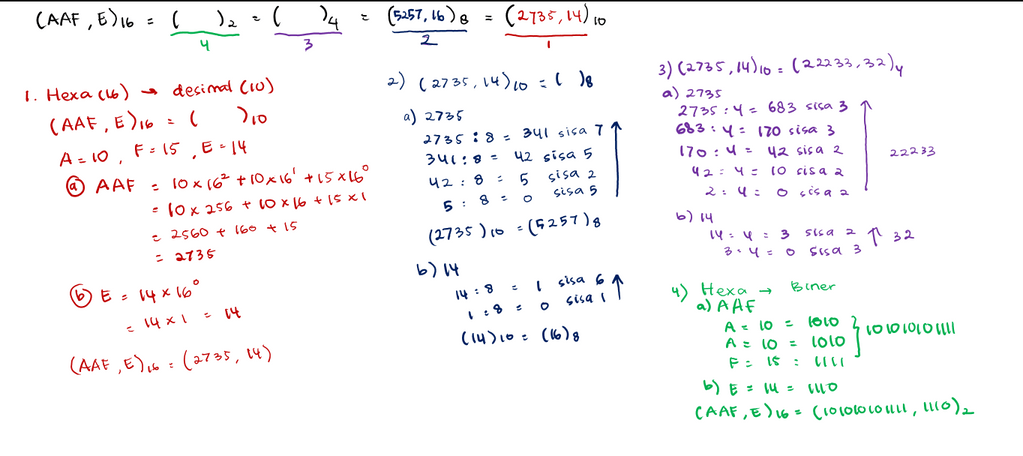 (AAF, E)16 = ( )2 = ( )4 = (5257, 16)8 = (2735, 14)10
4 3 2 1
1. Hexa (16) → desimal (10)
(AAF, E)16 = ( )10
A = 10, F = 15, E = 14
(a) AAF = 10 × 16² + 10 × 16¹ + 15 × 16⁰
= 10 × 256 + 10 × 16 + 15 × 1
= 2560 + 160 + 15
= 2735
(b) E = 14 × 16⁰
= 14 × 1 = 14
(AAF, E)16 = (2735, 14)
2) (2735, 14)10 = ( )8
a) 2735
2735 : 8 = 341 sisa 7
341 : 8 = 42 sisa 5
42 : 8 = 5 sisa 2
5 : 8 = 0 sisa 5
(2735)10 = (5257)8
b) 14
14 : 8 = 1 sisa 6
1 : 8 = 0 sisa 1
(14)10 = (16)8
3) (2735, 14)10 = (22233, 32)4
a) 2735
2735 : 4 = 683 sisa 3
683 : 4 = 170 sisa 3
170 : 4 = 42 sisa 2
42 : 4 = 10 sisa 2
2 : 4 = 0 sisa 2
22233
b) 14
14 : 4 = 3 sisa 2
3 : 4 = 0 sisa 3
32
4) Hexa → Biner
a) AAF
A = 10 = 1010
A = 10 = 1010
F = 15 : 1111
101010101111
b) E = 14 = 1110
(AAF, E)16 = (101010101111, 1110)2